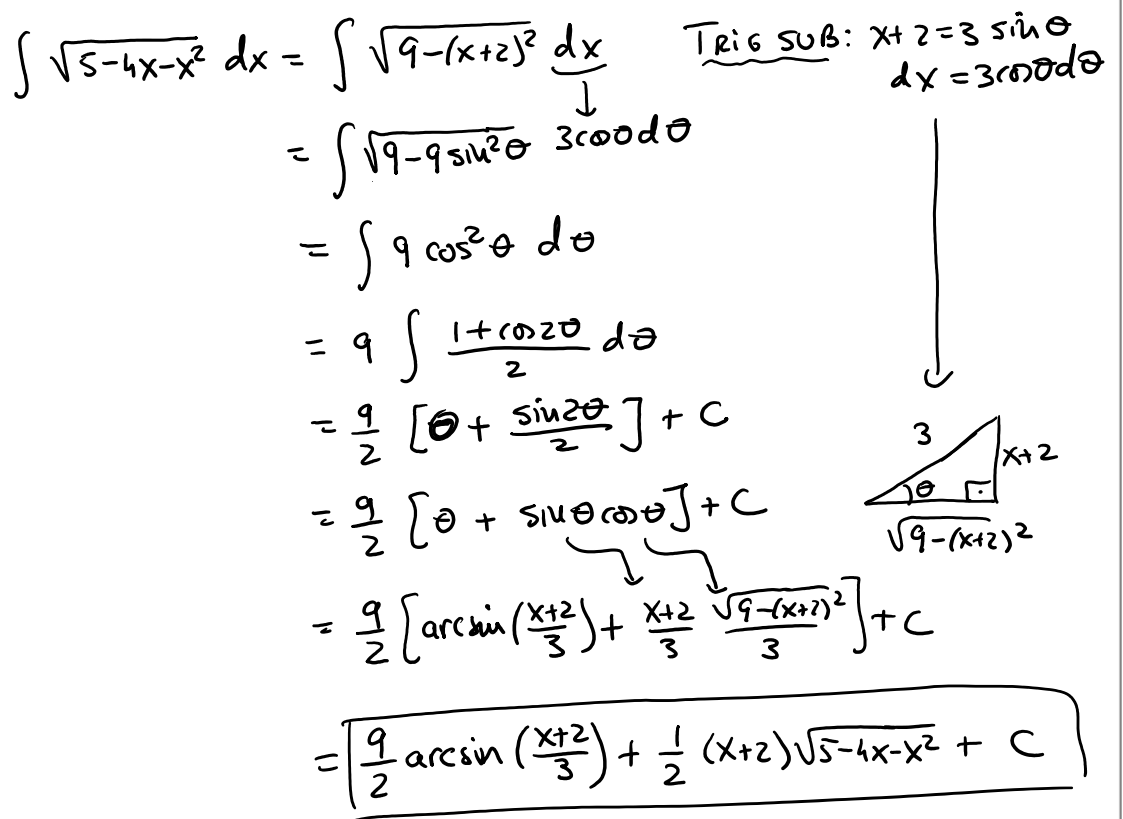 ∫ √(5-4x-x²) dx = ∫ √(9-(x+2)²) dx    TRIG SUB: x+2 = 3 sinθ
dx = 3cosθdθ
= ∫ √(9-9sin²θ) 3cosθdθ
= ∫ 9 cos²θ dθ
= 9 ∫ (1+cos2θ)/2 dθ
= 9/2 [θ + sin2θ/2] + C
3
x+2
θ
√(9-(x+2)²)
= 9/2 [θ + sinθcosθ] + C
= 9/2 [arcsin((x+2)/3) + (x+2)/3 √(9-(x+2)²)/3] + C
= 9/2 arcsin((x+2)/3) + 1/2 (x+2)√(5-4x-x²) + C